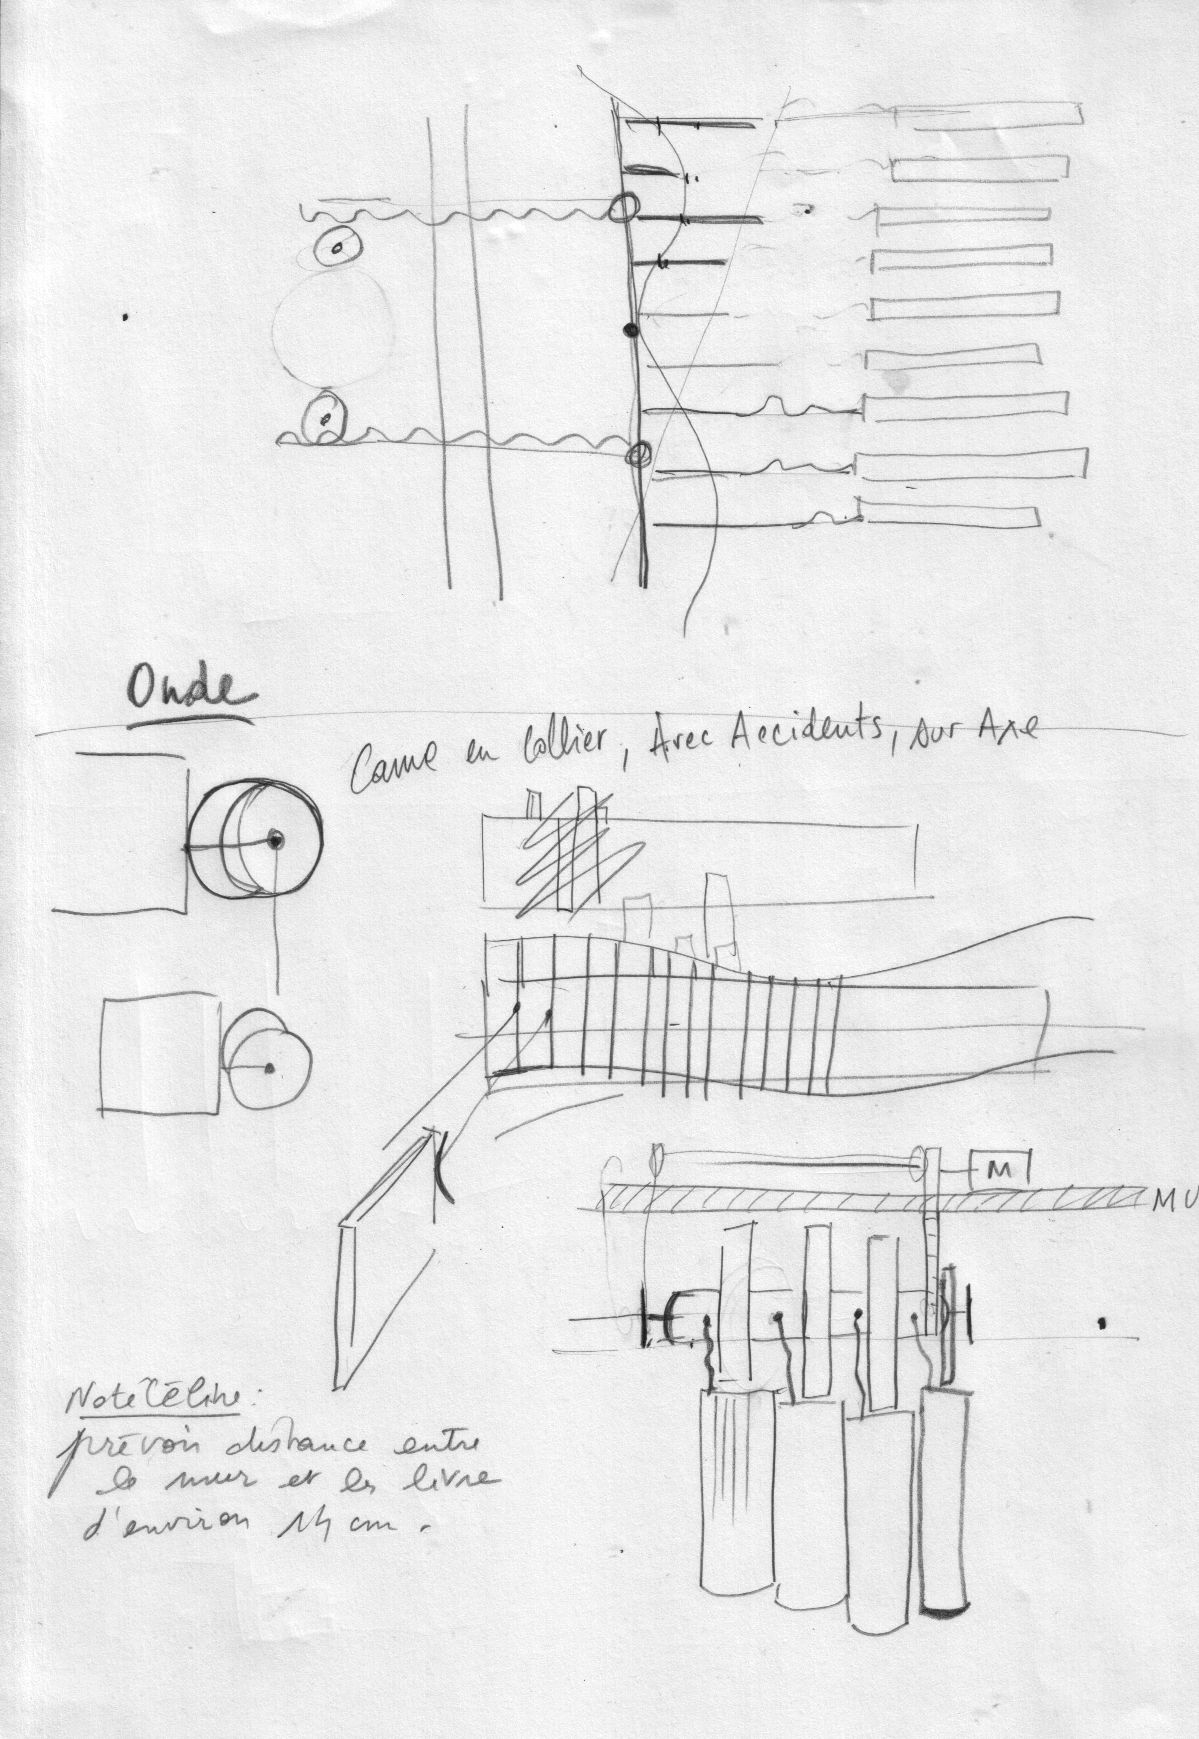 Onde
Came en Collier, Avec Accidents, sur Axe
M
MU
Note Céline:
prévoir distance entre
le mur et les livre
d'environ 14 cm.